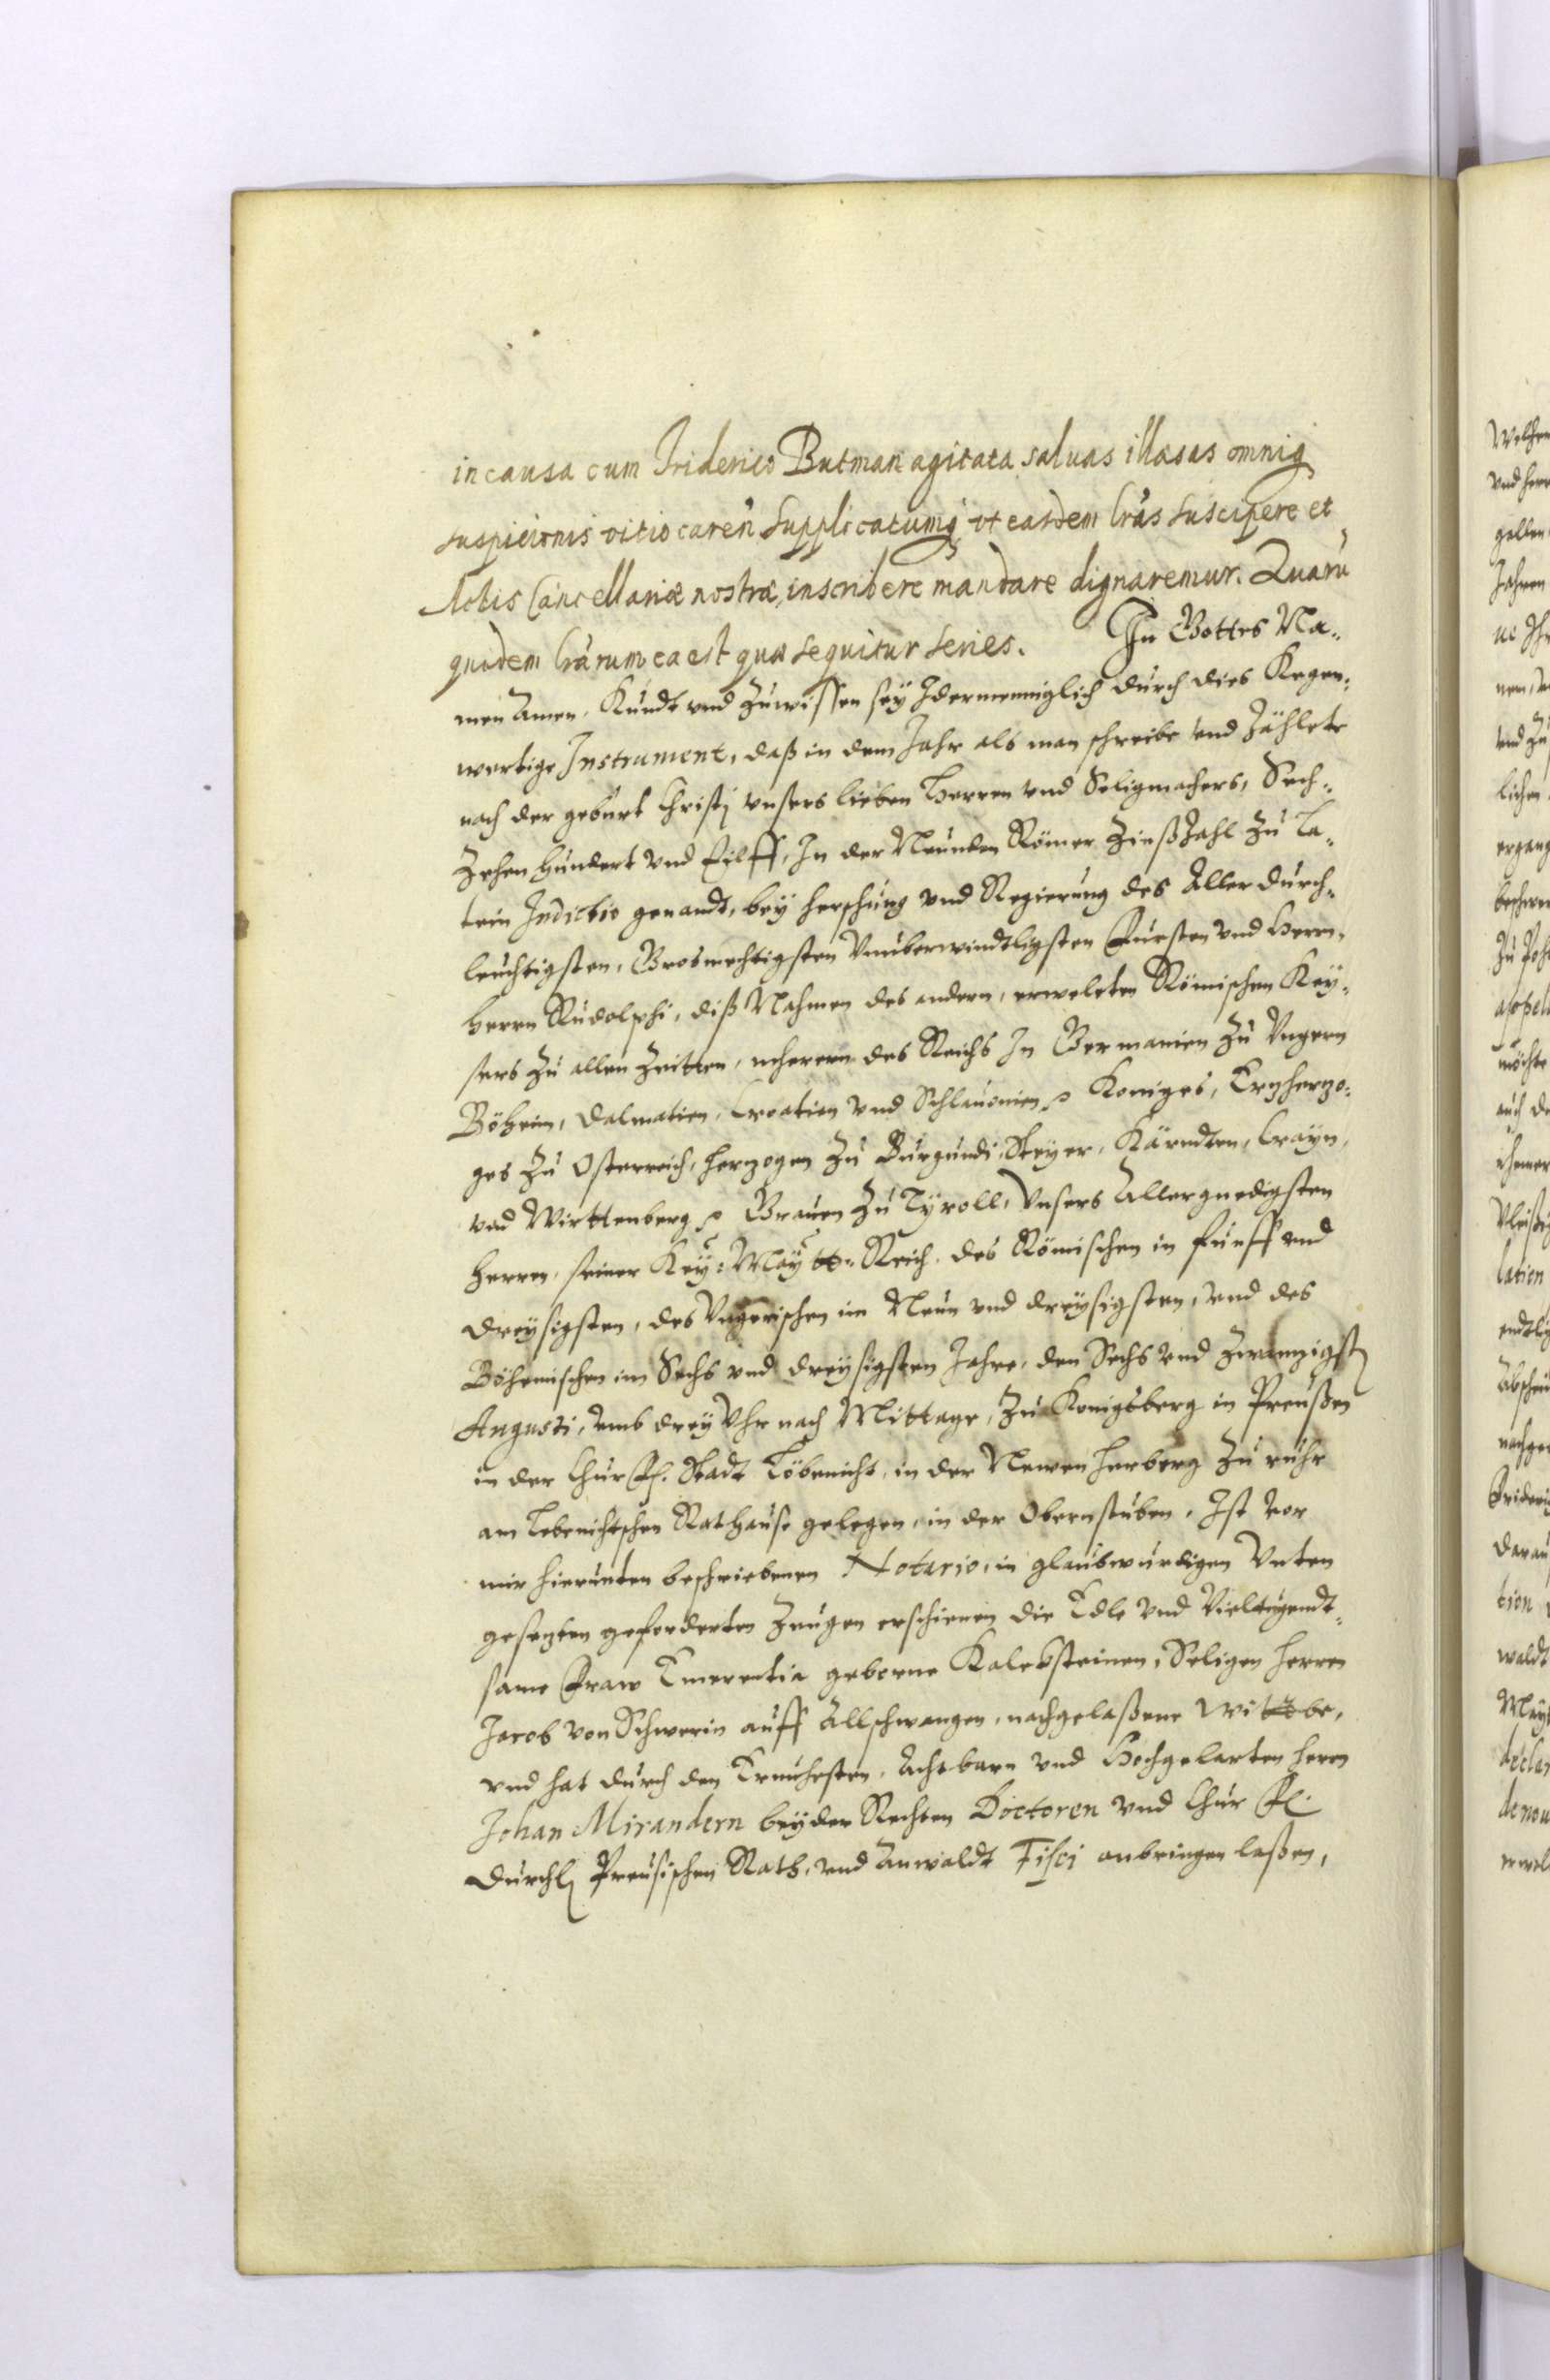 in causa cum Friderico Butman agitata saluas illæsas omniq
suspicionis vitio careñ Supplicatumq vt easdem lras suscipere et
Actis Cancellariæ nostræ inscribere mandare dignaremur. Quarũ
quidem lrarum ea est quæ sequitur series. In Gottes Na-
men Amen. Kundt vnd zuwissen sey Idermenniglich durch dies Kegen-
wertige Instrument, daß in dem Jahr als man schreibe vnd zählete
nach der geburt Christj vnsers lieben Herren vnd Seligmachers, Sech-
zehen hundert vnd Eilff, In der Neunden Römer Zinßzahl zu La-
tein Indictio genandt, bey herschung vnd Regierung des Aller durch-
leuchtigsten, Grosmechtigsten Vnuberwindtligsten Fursten vnd Herrn,
Herrn Rudolphi, diß Nahmen des andern, erweleten Römischen Key-
sers zu allen Zeitten, meherern des Reichs In Germanien zu Vngern
Böheim, Dalmatien, Croatien vnd Schlauonien Koniges, Ertzhertzo-
ges zu Osterreich, Hertzogen zu Burgundi, Steyer, Kärndten, Crayn,
vnd Wirttenberg Grauen zu Tyroll, Vnsers Allergnedigsten
Herren, seiner Key: Maytt: Reich des Römischen in funff vnd
dreysigsten, des Vngerischen im Neun vnd dreysigsten, vnd des
Böhemischen im Sechs vnd dreysigsten Jahre, den Sechs vnd zwantzigst
Augusti, vmb drey Vhr nach Mittage, zu Konigsberg in Preußen
in der Churf. Stadt Löbenicht, in der Newen Herberg zu
am Lebenichtschen Rathause gelegen, in der Obernstuben, Ist vor
mir hierunten beschriebenen Notario, in glaubwurdigen Vnten
gesetzten geforderten Zeugen erschienen die Edle vnd Vieltugendt-
same Fraw Emerentia geborne Kalcksteinen, Seligen Herren
Jacob von Schwerin auff Allschwangen, nachgelaßene Wittbe,
vnd hat durch den Ernuhesten, Achtbarn vnd Hochgelarten Herrn
Johan Mirandern beyder Rechten Doctoren vnd Chur Fl.
Durchl Preusischen Rath, vnd Anwaldt Fisci anbringen laßen,